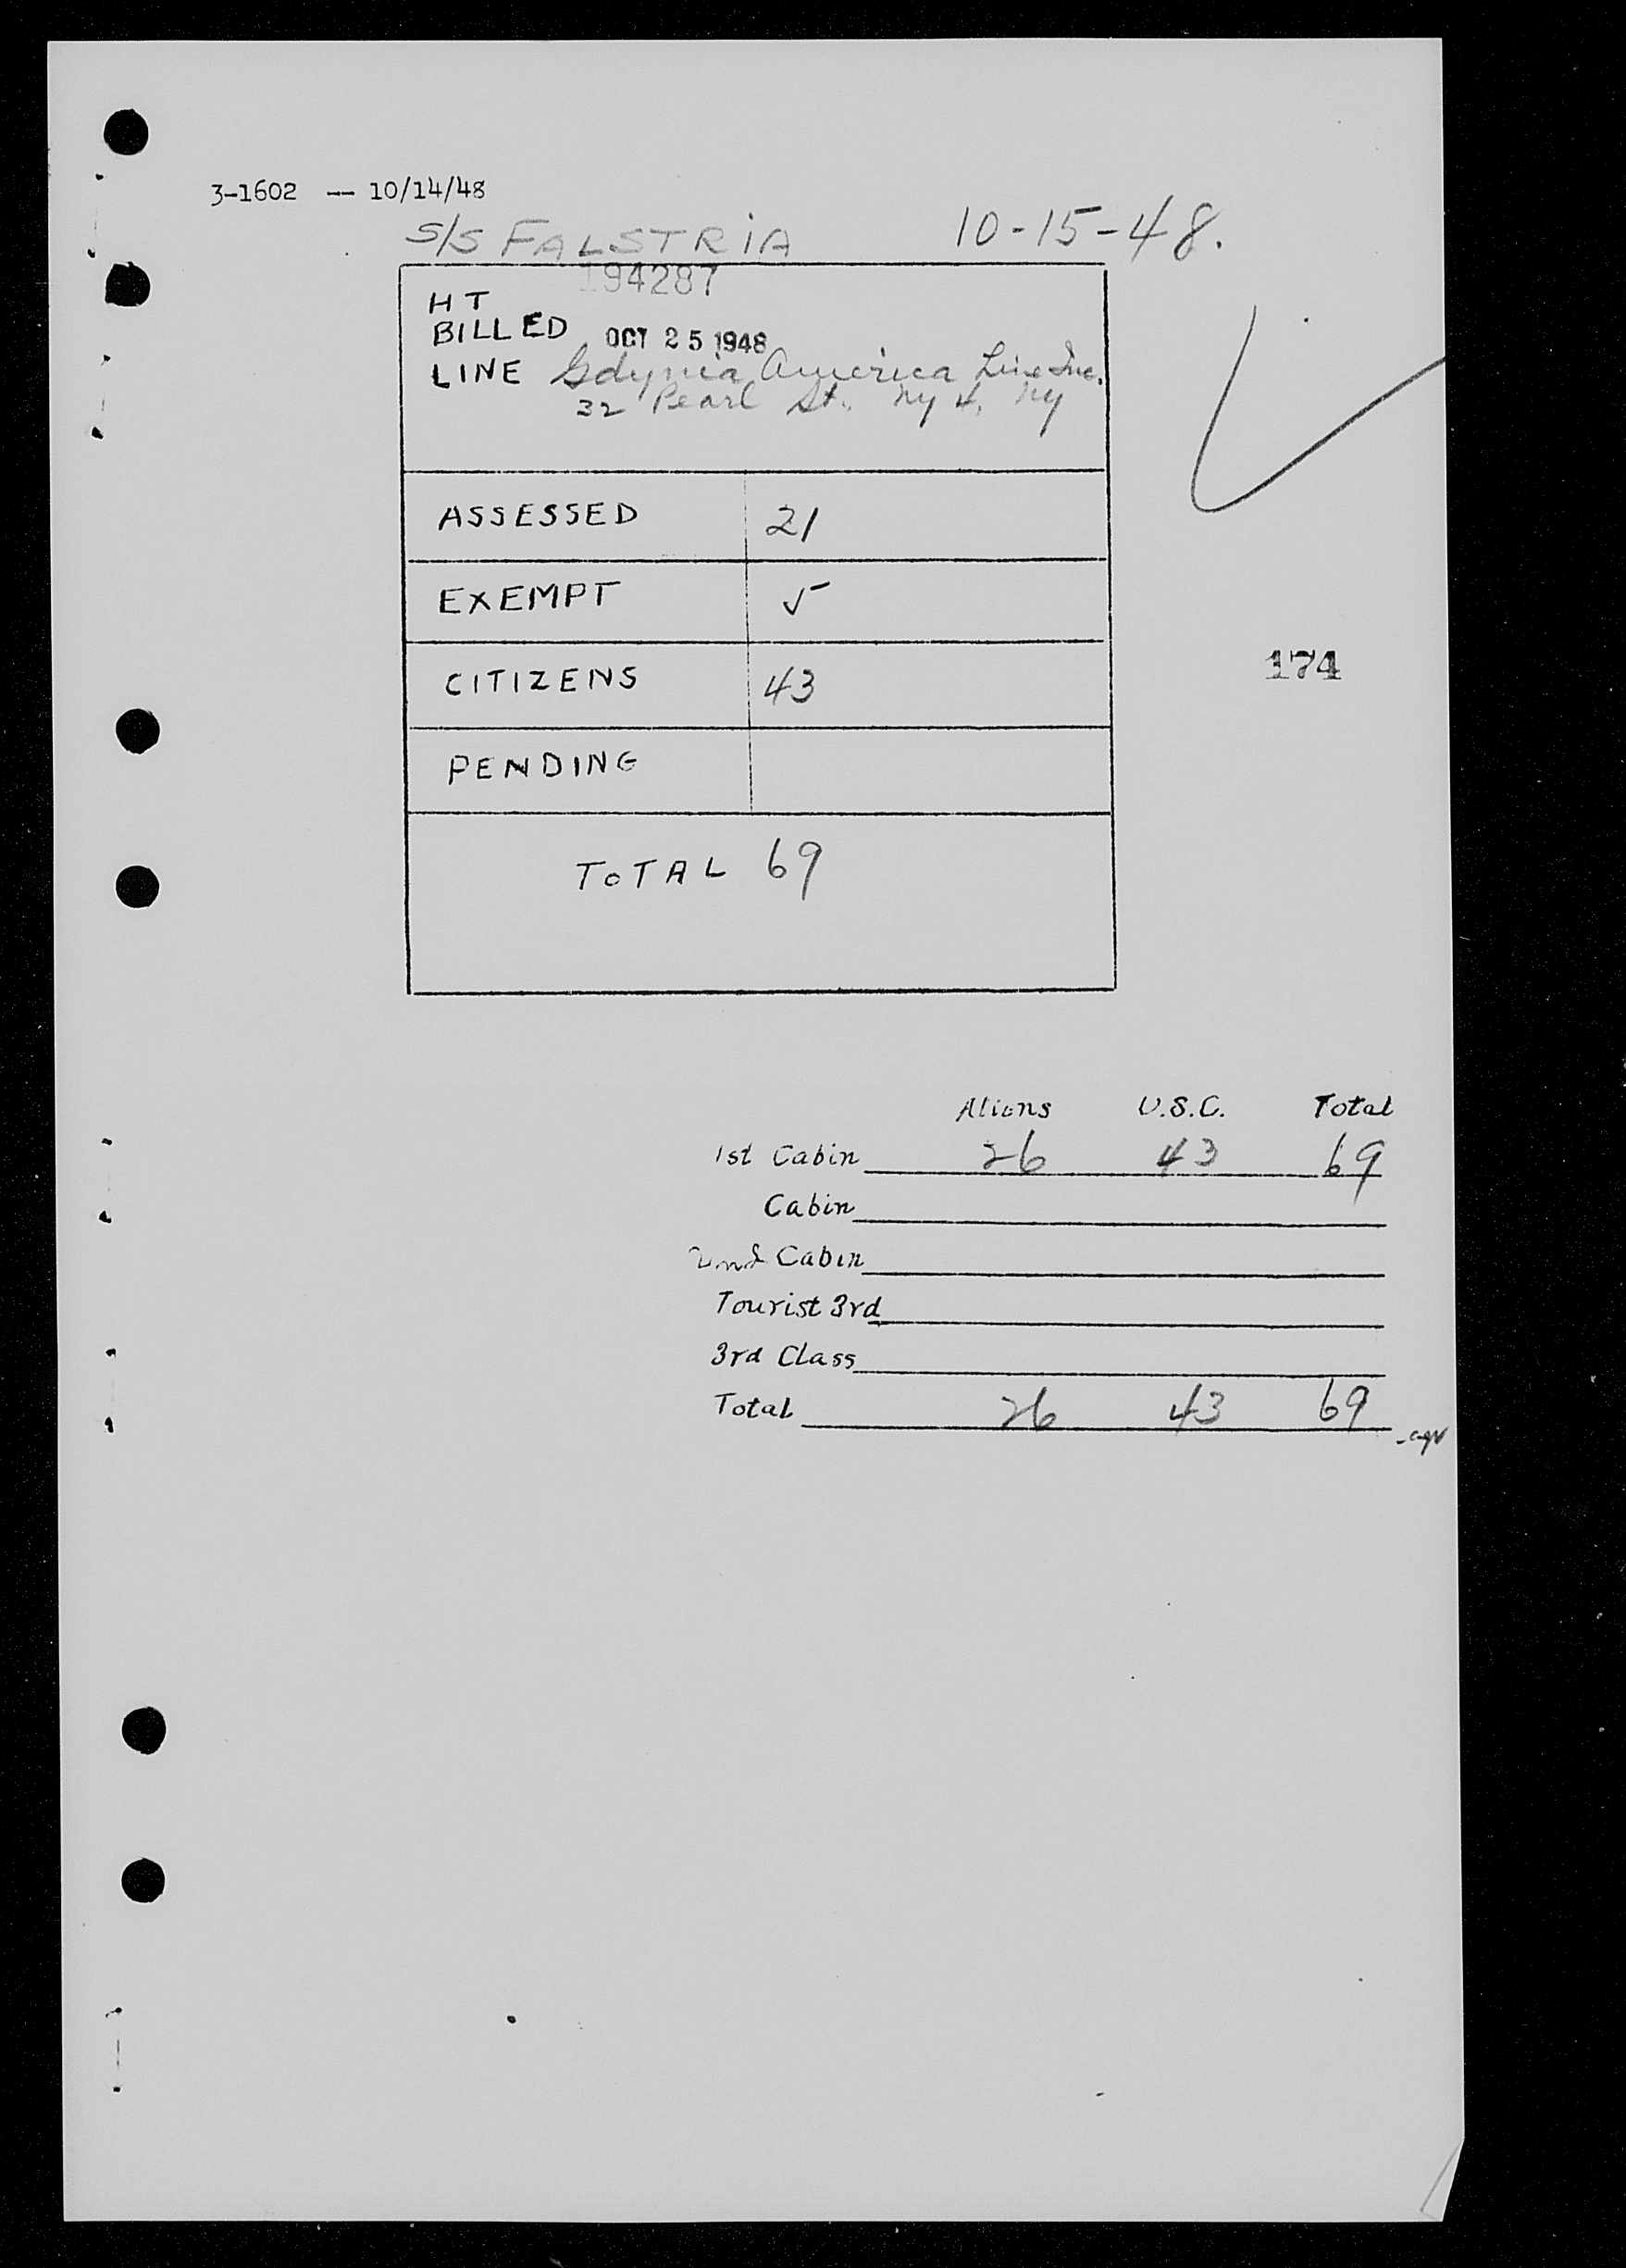 3-1602 -- 10/14/48
S/S FALSTRIA 10-15-48.
194287
HT
BILLED OCT 25 1948
LINE Gdynia America Line Inc.
32 Pearl St. Ny 4, Ny
ASSESSED 21
EXEMPT 5
CITIZENS 43
174
PENDING
TOTAL 69
Aliens U.S.C. Total
1st Cabin 26 43 69
Cabin
2nd Cabin
Tourist 3rd
3rd Class
Total 26 43 69